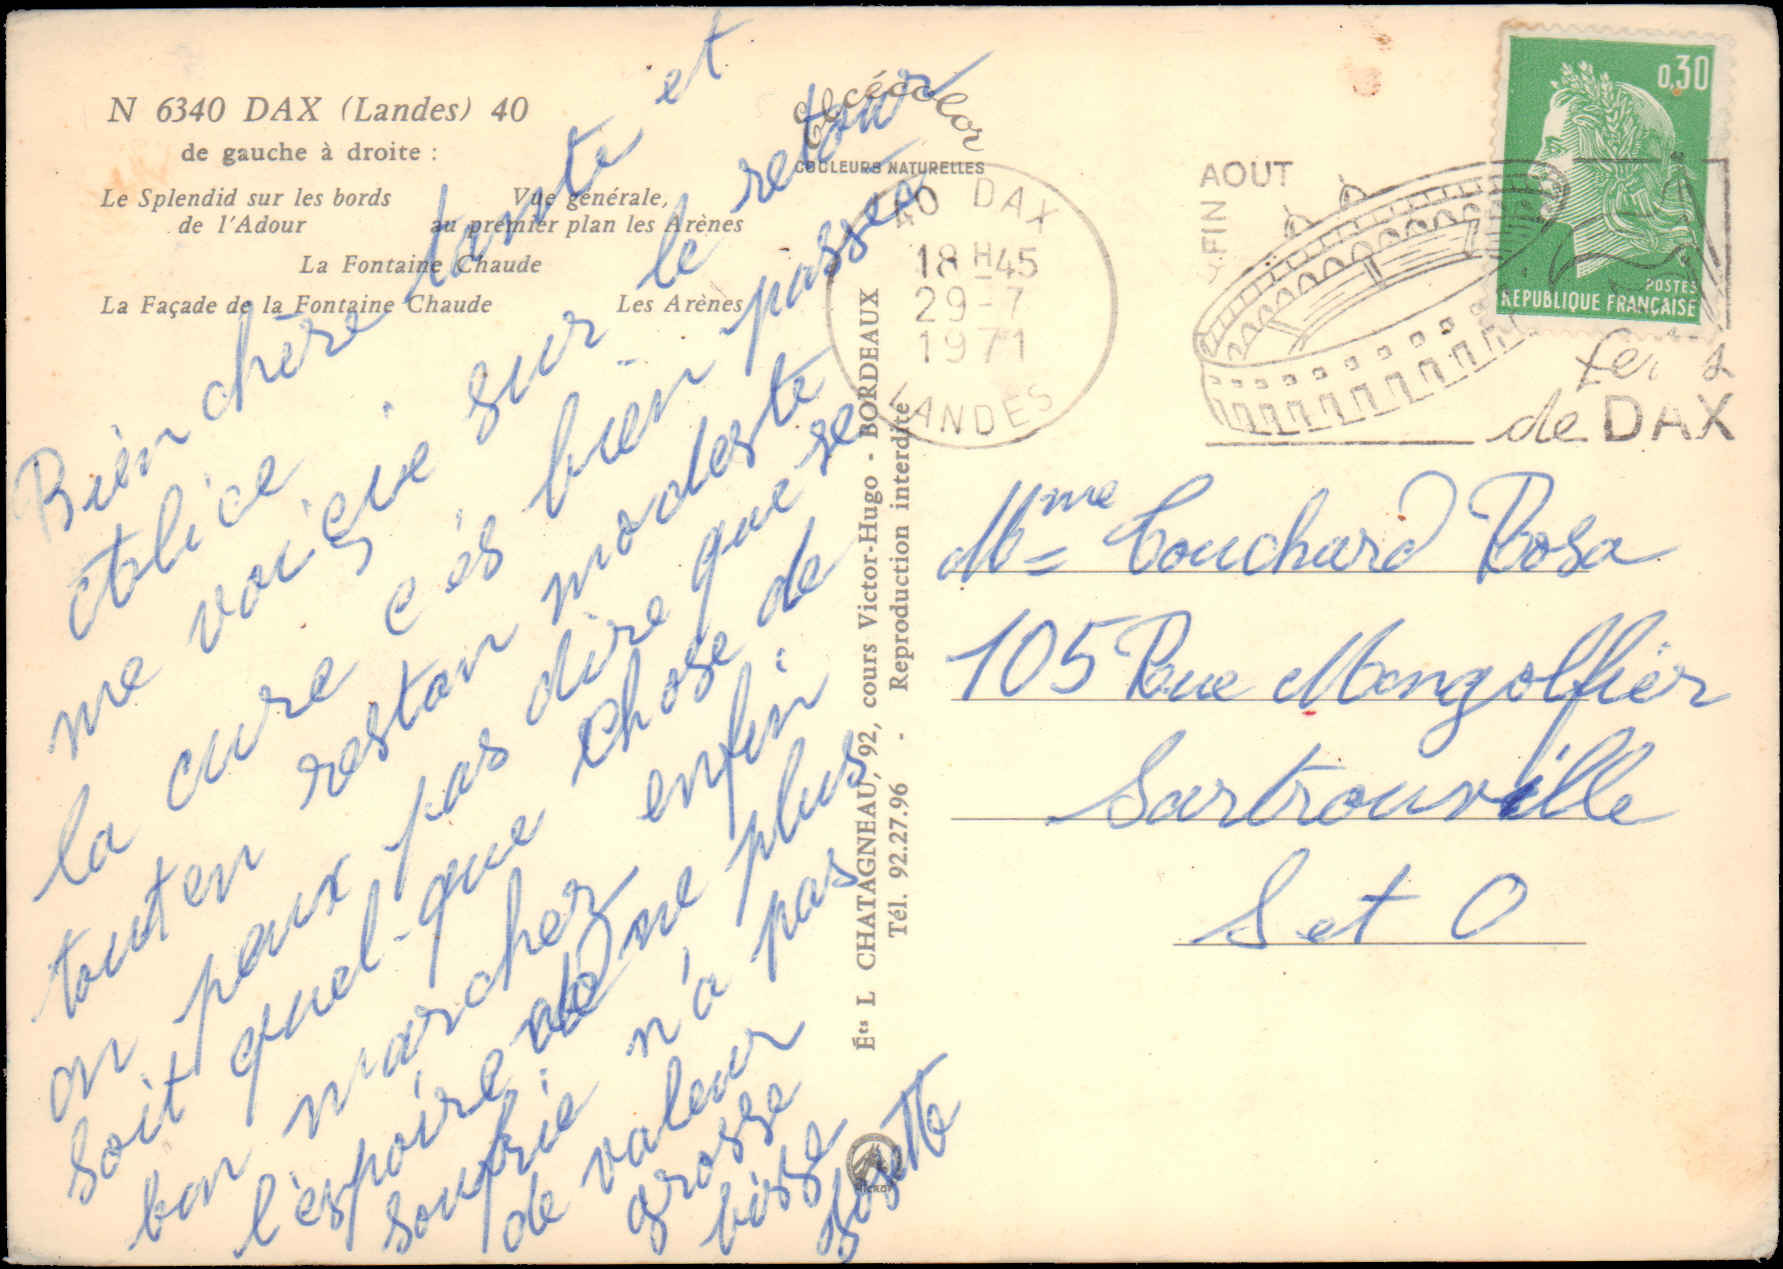 N 6340 DAX (Landes) 40
de gauche à droite :
Le Splendid sur les bords
de l'Adour
Vue générale,
au premier plan les Arènes
La Fontaine Chaude
La Façade de la Fontaine Chaude
Les Arènes
Bien chère tante et
Alice
me voiçie sur le retour
la cure c'és bien passés
tout en restan modeste
on peaux pas dire que se
soit quel-que chose de
bon marcher enfin
l'éspoire de ne plus
soufrie n'a pas
de valeur
grosse
bisse
Josette
Elcécolor
COULEURS NATURELLES
Éts L CHATAGNEAU, 92, cours Victor-Hugo - BORDEAUX
Tél. 92.27.96 - Reproduction interdite
40 DAX
18H45
29-7
1971
LANDES
FIN AOUT
de DAX
0,30
POSTES
REPUBLIQUE FRANÇAISE
Mme Couchard Rosa
105 Rue Mongolfier
Sartrouville
S et O